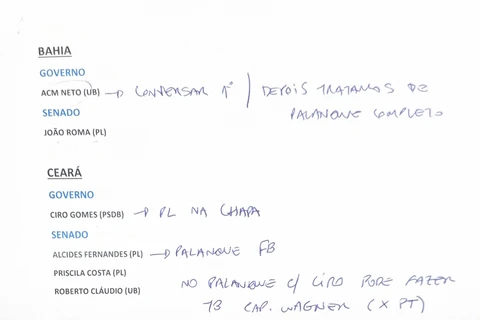 BAHIA
GOVERNO
ACM NETO (UB) → CONVERSAR 1º / DEPOIS TRATAMOS DE
PALANQUE COMPLETO
SENADO
JOÃO ROMA (PL)
CEARÁ
GOVERNO
CIRO GOMES (PSDB) → PL NA CHAPA
SENADO
ALCIDES FERNANDES (PL) → PALANQUE FB
PRISCILA COSTA (PL)
ROBERTO CLÁUDIO (UB)
NO PALANQUE C/ CIRO PODE FAZER
TB CAP. WAGNER (X PT)